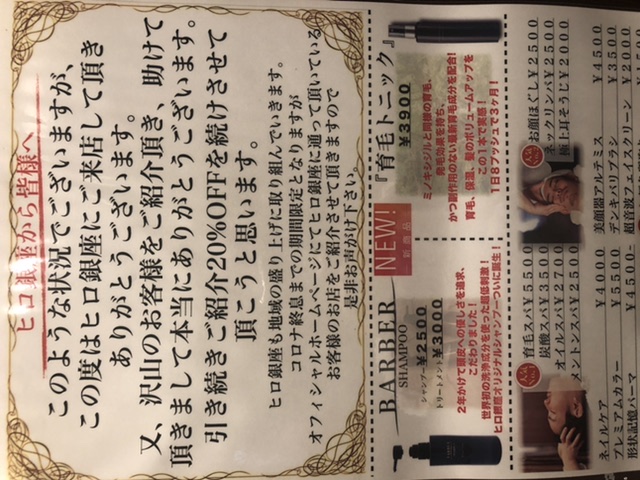 ヒロ銀座から皆様へ
このような状況でございますが、
この度はヒロ銀座にご来店して頂き
ありがとうございます。
又、沢山のお客様をご紹介頂き、助けて
頂きまして本当にありがとうございます。
引き続きご紹介20%OFFを続けさせて
頂こうと思います。
ヒロ銀座も地域の盛り上げに取り組んでいきます。
コロナ終息までの期間限定となりますが
オフィシャルホームページにてヒロ銀座に通って頂いている
お客様のお店をご紹介させて頂きますので
是非お声がけ下さい。
NEW!
新商品
『育毛トニック』
¥3900
ミノキシジルと同様の育毛、
発毛効果を持ち、
かつ副作用のない最新育毛成分を配合!
育毛、保湿、髪のボリュームアップを
この1本で実感!
1日8プッシュで3ヶ月!
BARBER
SHAMPOO
シャンプー ¥2500
トリートメント ¥3000
2年かけて頭皮への優しさを追求、
こだわりました!
世界初の洗浄成分を使った超低刺激!
ヒロ銀座オリジナルシャンプーついに誕生!
お顔ほぐし ¥2500
ネックリンパ ¥2500
極上耳そうじ ¥2000
育毛スパ ¥5500
炭酸スパ ¥3500
オイルスパ ¥2700
メントンスパ ¥2500
美顔器アルティミス ¥4500
デンキバリブラシ ¥3500
超音波フェイスクリーン ¥2000
ネイルケア ¥4000
プレミアムカラー ¥5500
形状記憶パーマ ¥4500~